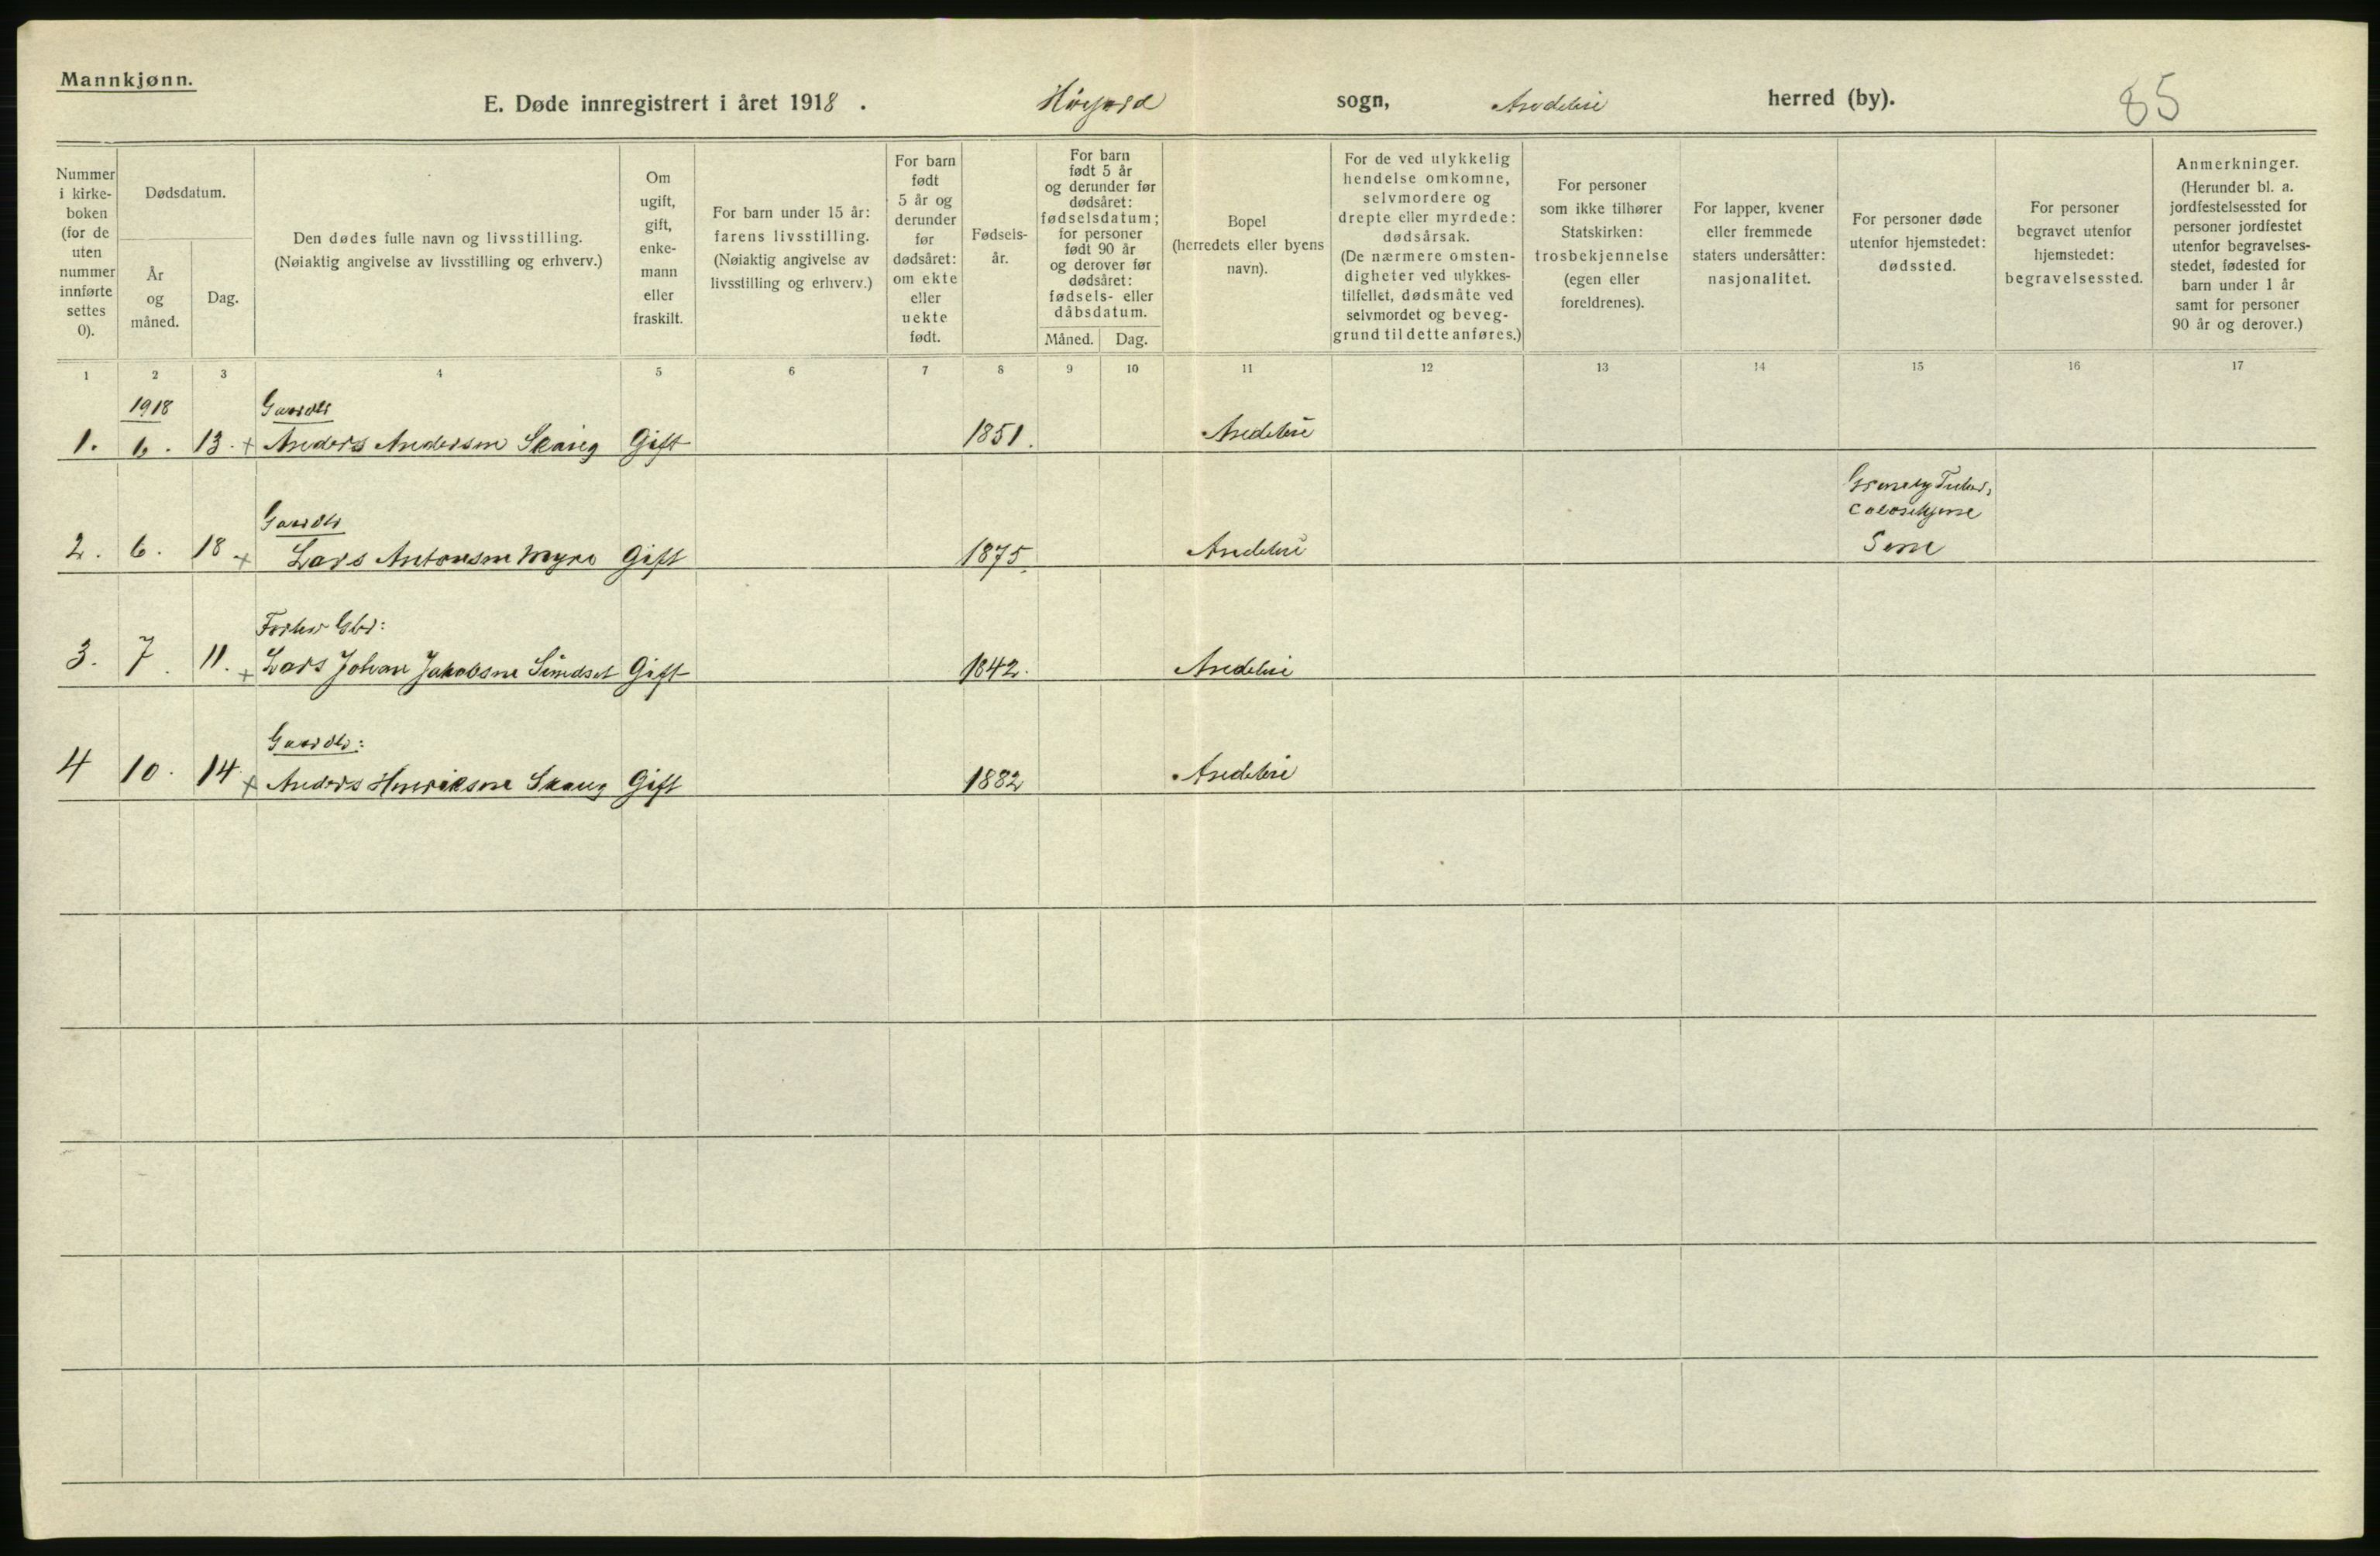 Mannkjønn.
E. Døde innregistrert i året 1918 . Høyjord sogn, Andebu herred (by). 85
Nummer i kirke- boken (for de uten nummer innførte settes 0).
Dødsdatum.
År og måned.
Dag.
Den dødes fulle navn og livsstilling.
(Nøiaktig angivelse av livsstilling og erhverv.)
Om ugift, gift, enke- mann eller fraskilt.
For barn under 15 år: farens livsstilling. (Nøiaktig angivelse av livsstilling og erhverv.)
For barn født 5 år og derunder før dødsåret: om ekte eller uekte født.
Fødsels- år.
For barn født 5 år og derunder før dødsåret: fødselsdatum; for personer født 90 år og derover før dødsåret: fødsels- eller dåbsdatum.
Måned. Dag.
Bopel (herredets eller byens navn).
For de ved ulykkelig hendelse omkomne, selvmordere og drepte eller myrdede: dødsårsak. (De nærmere omsten- digheter ved ulykkes- tilfellet, dødsmåte ved selvmordet og beveg- grund til dette anføres.)
For personer som ikke tilhører Statskirken: trosbekjennelse (egen eller foreldrenes).
For lapper, kvener eller fremmede staters undersåtter: nasjonalitet.
For personer døde utenfor hjemstedet: dødssted.
For personer begravet utenfor hjemstedet: begravelsessted.
Anmerkninger. (Herunder bl. a. jordfestelsessted for personer jordfestet utenfor begravelses- stedet, fødested for barn under 1 år samt for personer 90 år og derover.)
1 2 3 4 5 6 7 8 9 10 11 12 13 14 15 16 17
1918 Gaardbr
1. 6. 13. + Anders Andersen Skaug Gift 1851. Andebu
Gaardbr
2. 6. 18 + Lars Antonsen Myre Gift 1875. Andebu
Sem
Forhv Gbr:
3. 7. 11. + Lars Johan Jakobsen Sundset Gift 1842. Andebu
Gaardbr:
4 10. 14 + Anders Henriksen Skaug Gift 1882 Andebu